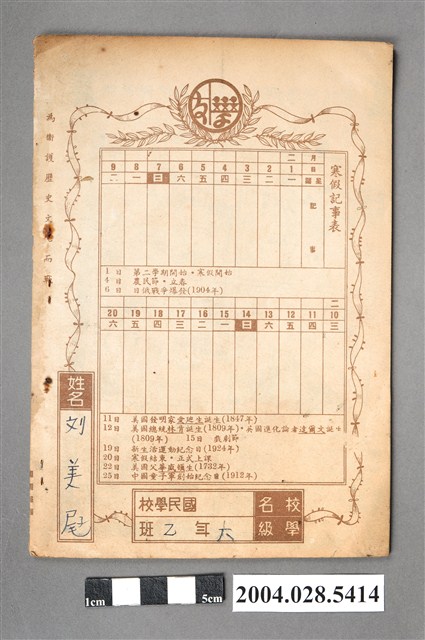 為衛護歷史文
寒假記事表
月 二
日 1 2 3 4 5 6 7 8 9
星期 一 二 三 四 五 六 日 一 二
記事
1日 第二學期開始・寒假開始
4日 農民節・立春
6日 日俄戰爭爆發(1904年)
二
10 11 12 13 14 15 16 17 18 19 20
三 四 五 六 日 一 二 三 四 五 六
11日 美國發明家愛迪生誕生(1847年)
12日 美國總統林肯誕生(1809年)・英國進化論者達爾文誕生
(1809年) 15日 戲劇節
19日 新生活運動紀念日(1924年)
20日 寒假結束・正式上課
22日 美國父華盛頓生(1732年)
25日 中國童子軍創始紀念日(1912年)
姓名
刘美尾
校名 國民學校
學級 六年乙班
1cm 5cm
2004.028.5414